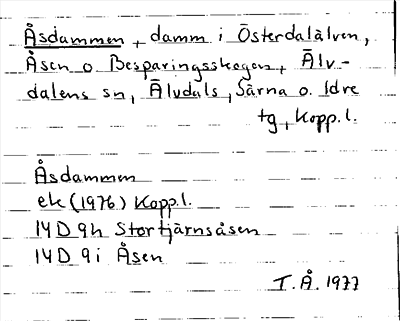 Åsdammen, damm i Österdalälven,
Åsen o Besparingsskogen, Älv-
dalens sn, Älvdals, Särna o. Idre
tg, Kopp.l.
Åsdammen
ek (1976) Kopp.l.
14 D 9h Stortjärnsåsen
14 D 9i Åsen
T.Å. 1977